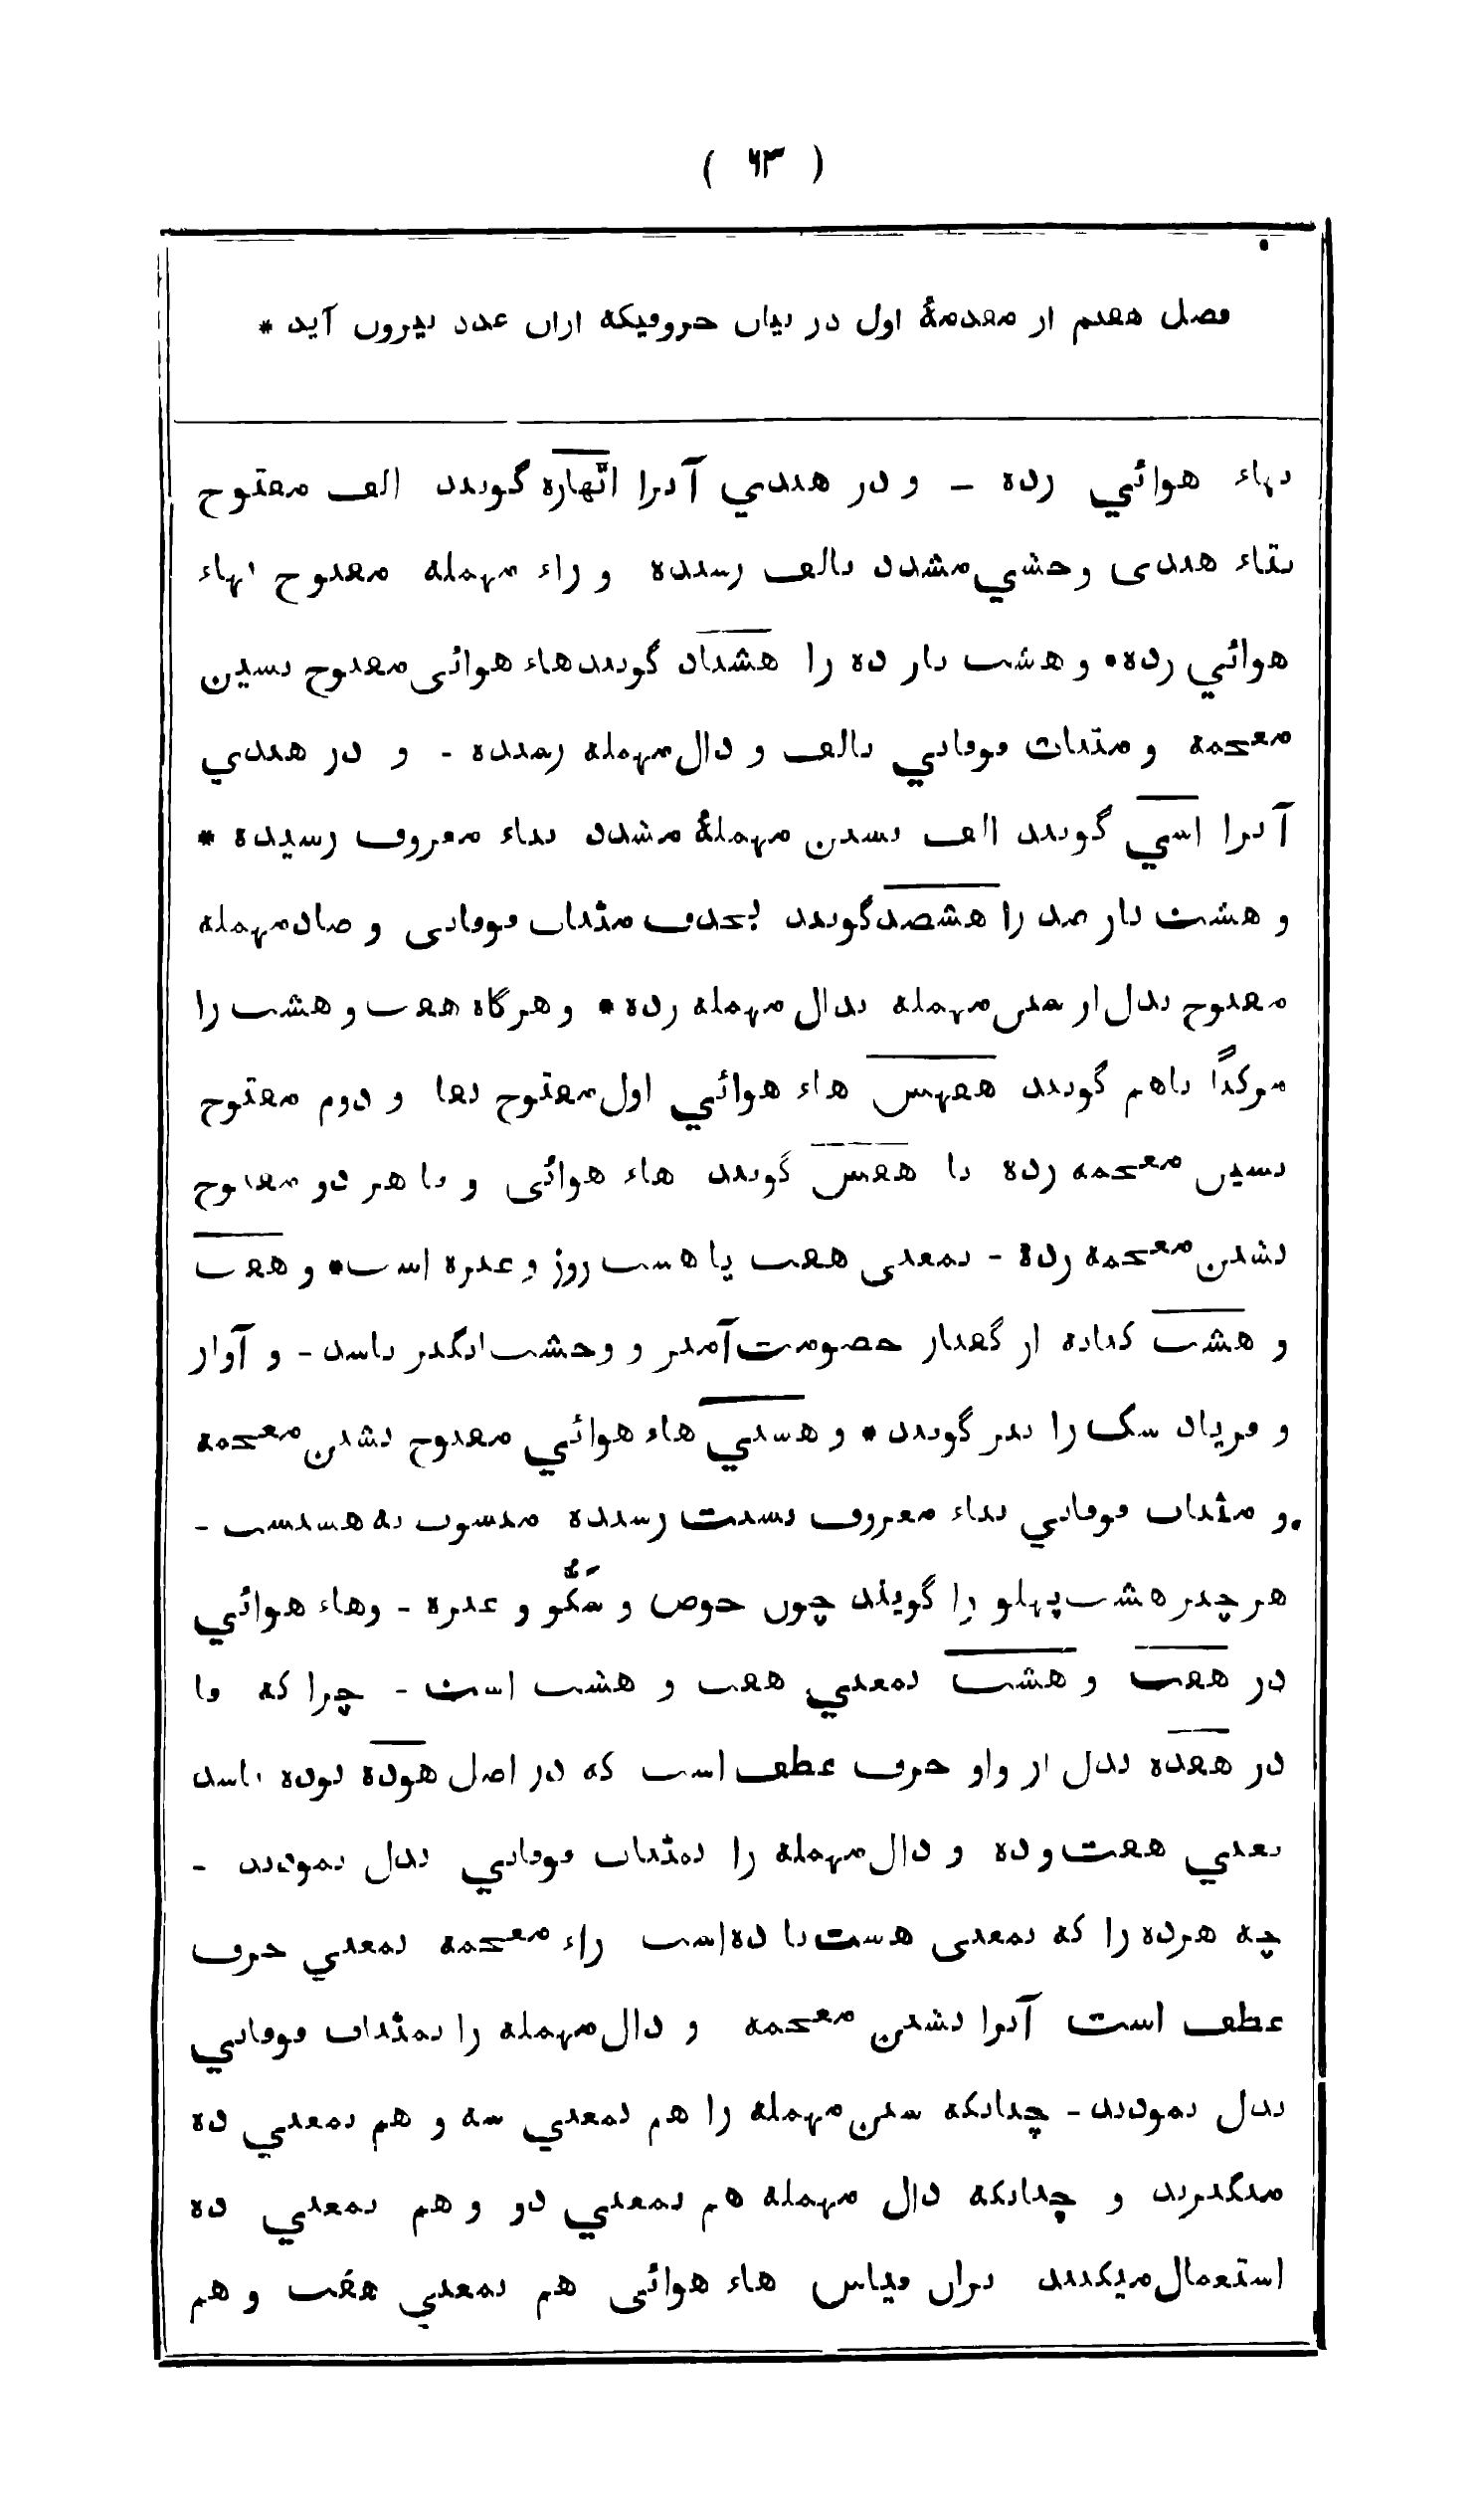 ( ۶۳ )
فصل هفتم از مقدمهٔ اول در بیان حروفیکه ازان عدد بیرون آید *
بهاء هوائي زده - و در هندي آنرا اٹھاره گویند الف مفتوح
بتاء هندی وحشي مشدد بالف رسیده و راء مهمله مفتوح بهاء
هوائي زده • و هشت بار ده را هشتاد گویند هاء هوائی مفتوح بسین
معجمه و مثنات فوقاني بالف و دال مهمله رسیده - و در هندي
آنرا اسي گویند الف بسین مهملهٔ مشدد بیاء معروف رسیده *
و هشت بار صد را هشصد گویند بحذف مثنات فوقانی و صاد مهمله
مفتوح بدل از سین مهمله بدال مهمله زده • و هرگاه هفت و هشت را
موکداً باهم گویند هفهش هاء هوائي اول مفتوح بفا و دوم مفتوح
بسین معجمه زده یا هفش گویند هاء هوائی و فا هر دو مفتوح
بشین معجمه زده - بمعنی هفت یا هشت روز و غیره است • و هفت
و هشت کنایه از گفتار خصومت آمیز و وحشت انگیز باشد - و آواز
و فریاد سگ را نیز گویند • و هشتي هاء هوائي مفتوح بشین معجمه
و مثنات فوقاني بیاء معروف نسبت رسیده منسوب به هشتست -
هر چیز هشت پهلو را گویند چون حوض و و غیره - وهاء هوائي
در هفت و هشت بمعني هفت و هشت است - چرا که فا
در هفده بدل از واو حرف عطف است که در اصل هوده بوده باشد
یعني هفت و ده و دال مهمله را بمثنات فوقاني بدل نمودند -
چه هژده را که بمعنی هشت با ده است زاء معجمه بمعني حرف
عطف است آنرا بشین معجمه و دال مهمله را بمثنات فوقاني
بدل نمودند - چنانکه سین مهمله را هم بمعني سه و هم بمعني ده
میگیرند و چنانکه دال مهمله هم بمعني دو و هم بمعني ده
استعمال میکنند بران قیاس هاء هوائی هم بمعني هفت و هم